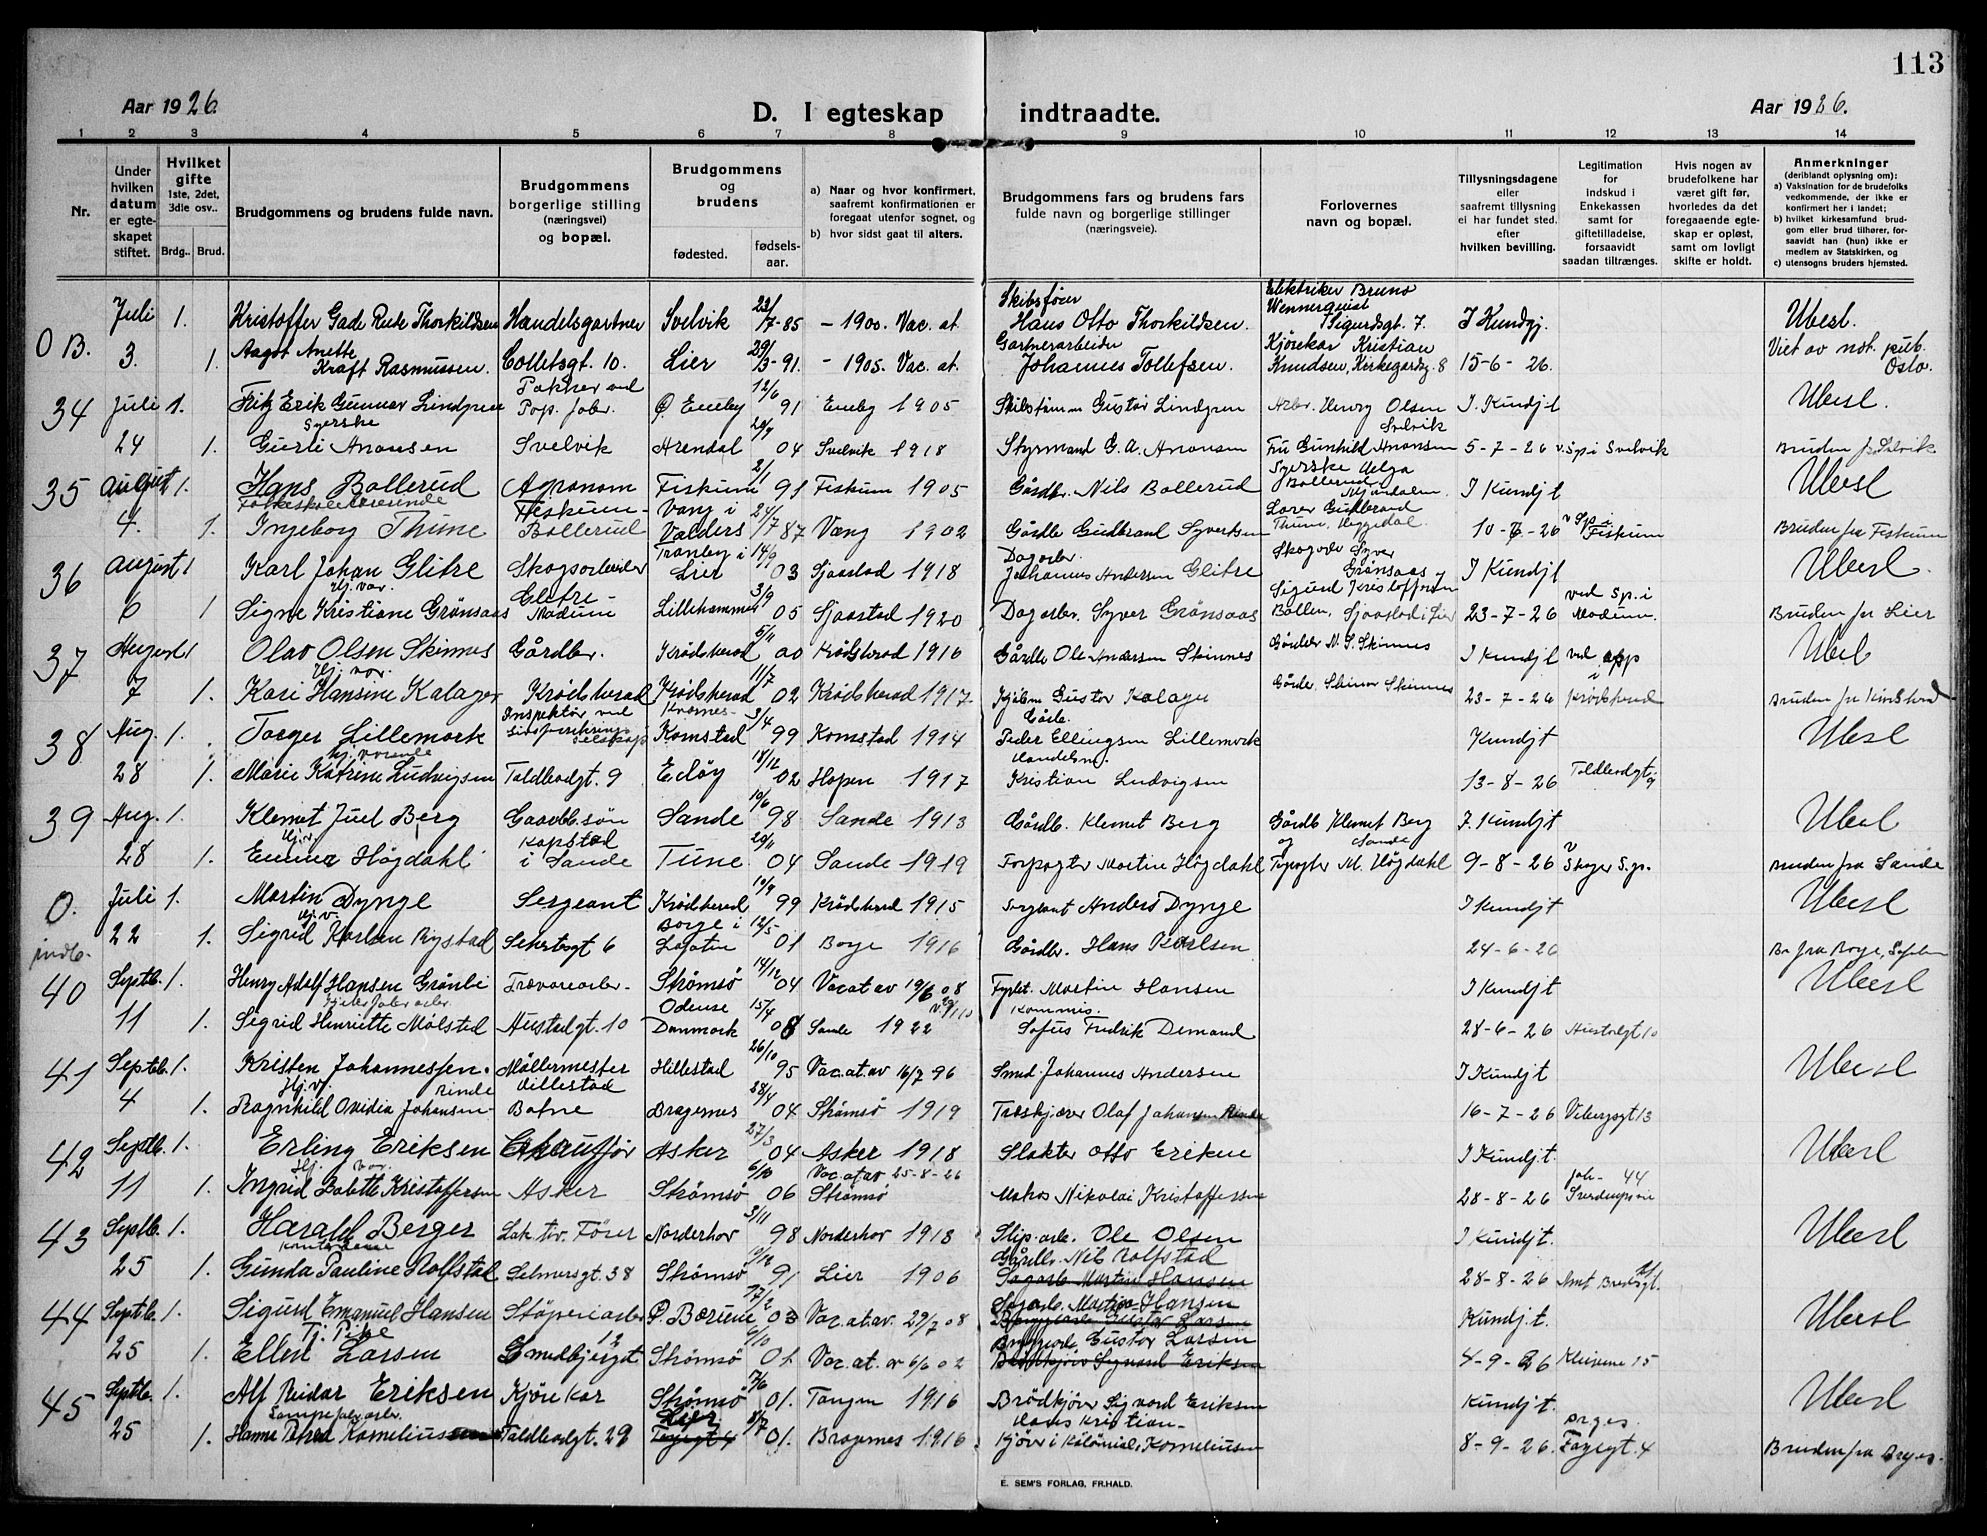 113
Aar 1926.
D. I egteskap indtraadte.
Aar 1926.
1 2 3 4 5 6 7 8 9 10 11 12 13 14
Nr.
Under hvilken datum er egteskapet stiftet.
Hvilket gifte 1ste, 2det, 3die osv..
Brdg.. Brud.
Brudgommens og brudens fulde navn.
Brudgommens borgerlige stilling (næringsvei) og bopæl.
Brudgommens og brudens
fødested.
fødsels-aar.
a) Naar og hvor konfirmert, saafremt konfirmationen er foregaat utenfor sognet, og
b) hvor sidst gaat til alters.
Brudgommens fars og brudens fars fulde navn og borgerlige stillinger (næringsveie).
Forlovernes navn og bopæl.
Tillysningsdagene eller saafremt tillysning ei har fundet sted, efter hvilken bevilling.
Legitimation for indskud i Enkekassen samt for giftetilladelse, forsaavidt saadan tiltrænges.
Hvis nogen av brudefolkene har været gift før, hvorledes da det foregaaende egteskap er opløst, samt om lovligt skifte er holdt.
Anmerkninger (deriblandt oplysning om):
a) Vaksination for de brudefolks vedkommende, der ikke er konfirmert her i landet;
b) hvilket kirkesamfund brudgom eller brud tilhører, forsaavidt han (hun) ikke er medlem av Statskirken, og
c) utensogns bruders hjemsted.
O B. Juli 1. Kristoffer Gade Rude Thorkildsen Handelsgartner Svelvik 23/7-85 - 1900. Vac. at Skibsfører Hans Otto Thorkildsen. Elektriker Bruno Wennerquist Sigurdsgt. 7. I Kundgj. Ubesl.
3. 1. Aagot Anette Kraft Rasmussen. Colletsgt. 10. Lier 29/3-91. - 1905. Vac. at Gartnerarbeider Johannes Tollefsen. Kjørekar Kristian Knudsen, Kirkegardsg. 8 15-6-26. Viet av not. pub. Oslo.
34 Juli 1. Fritz Erik Gunnar Lindgren Pakker ved Pap. fabr. Ø. Eneby 12/6 91 Eneby 1905 Skibstømm Gustav Lindgren Arbr. Henry Olsen Svelvik I. Kundj t Ubesl.
24 1. Syerske Gurli Anonsen Svelvik Arendal 04 Svelvik 1918 Styrmand G. A. Anonsen Fru Gunhild Anonsen 5-7-26 v. Sp. i Svelvik Bruden fr Svelvik
35 August 1. Hans Bollerud Agronom Fiskum 2/1 91 Fiskum 1905 Gårdbr. Nils Bollerud Syerske Helga Bollerud Mjøndalen I Kundj t Ubesl
4. 1. Folkeskolelærerinde Ingeborg Thune Fiskum- Bollerud Vang i Valders 24/7 87 Vang 1902 Gårdbr Gudbrand Syvertsen Lærer Gudbrand Thune, Heggedal. 10-6-26 v Sp. i Fiskum Bruden fra Fiskum
36 August 1 Karl Johan Glitre Skogsarbeider Tranby i Lier 14/9 03 Sjaastad 1918 Dagarbr. Johannes Andersen Glitre Skogarb Syver Grønsaas I Kundj t Ubesl.
6 1 Hj. vær. Signe Kristiane Grønsaas Glitre- Modum Lillehammer 3/9 05 Sjaastad 1920 Dagarbr. Syver Grønsaas Sigurd Kristoffersen Bollen, Sjaastad i Lier 23-7-26 ved Sp. i Modum. Bruden fr Lier
37 August 1 Olav Olsen Skinnes Gårdbr. Krødsherad 5/11 00 Krødsherad 1916 Gårdbr Ole Andersen Skinnes Gårdbr N. S. Skinnes I Kundj t ved opp Ubesl
7 1. Hj. vær. Kari Hansine Kalager Krødsherad Krødsherad 11/7 02 Krødsherad 1917 Gustav Kalager Skinnes 23-7-26 i Krødsherad Bruden fr Krødsherad
38 Aug. 1. Torger Lillemork Inspektør ved Livsforsikrings selskap Kvernes- Kornstad 3/4 99 Kornstad 1914 Gårdbr. Peder Ellingsen Lillemork Kundj t Ubesl
28 1. Hj. værende Marie Katrine Ludvigsen Toldbodgt. 9 Edøy 18/12 02 Hopen 1917 Handelsm. Kristian Ludvigsen 13-8-26 Toldbodgt. 9
39 Aug. 1. Klemet Juel Berg Gaardbr. søn Sande 10/6 98 Sande 1913 Gårdb. Klemet Berg Gårdb Klemet Berg Sande I. Kundj t Ubesl
28 1. Hj. v. Emma Høgdahl Kopstad i Sande Tune 20/11 04 Sande 1919 Forpagter Martin Høgdahl og Forpagter M. Høgdahl 9-8-26 v Skoger S.p. Bruden fra Sande
O. indb. Juli 1. Martin Dynge Sergeant Krødsherad 10/9 99 Krødsherad 1915 Sergeant Anders Dynge I Kundj t Ubesl
22 1. Hj. v. Sigrid Karlsen Rystad Schertsgt 6 Borge i Lofoten 12/5 01 Borge 1916 Gårdbr. Hans Karlsen 24-6-26 Br fra Borge, Lofoten
40 Septb. 1. Henry Adolf Hansen Grønli Trævarearbr. Strømsø 14/12 04 Vac at av 19/6 08 Fyrbt. Martin Hansen I Kundj t Ubesl
11 1. Sigrid Henriette Mølstad Austadgt. 10 Odense Danmark 15/4 08 Sande 1922 Kommis. Sofus Fredrik Demand 28-6-26 Austadgt 10
41 Septb. 1. Kristen Johannessen. Møllermester Hillestad 26/10 95 Vac. at. av 16/7 96 Smed Johannes Andersen I Kundj t Ubesl
4 1. Hj. v. Ragnhild Ovidia Johansen Rinde Hillestad Botne Bragernes 28/4 04 Strømsø 1919 Træskjærer Olaf Johansen Rinde 16-7-26 Vibergsgt 13
42 Septb. 1. Erling Eriksen Chauffør Asker 27/3 04 Asker 1918 Slakter Otto Eriksen I Kundj. t. Ubesl
11 1. Hj. vær. Ingrid Babette Kristoffersen Asker Strømsø 6/10 06 Vac. at av 25-8-26 Strømsø Matros Nikolai Kristoffersen 28-8-26 Joh- Sverdrupsvei 44
43 Septb. 1. Harald Berger Lokotiv. Fører Norderhov 3/11 98 Norderhov 1913 Slip. arb. Ole Olsen I Kundj t. Ubesl
25 1. Kontordame Gunda Pauline Rolfstad Selmersgt. 38 Strømsø 91 Lier 1906 Gårdb. Nils Rolfstad Sagarb. Martin Hansen 28-8-26
44 Septb. 1. Sigurd Emanuel Hansen Støperiarbr Ø. Bærum 17/2 03 Vac. at. av. 29/7 08 Sagarb. Martin Hansen Kundj. t. Ubesl
25 1. Tj. Pike Ellen Larsen Smedbjergt 12 Strømsø 01. Vac. at. av 6/6 02 Gustav Larsen 4-9-26 15
45 Septb. 1. Alf Reidar Eriksen Kjørekar Strømsø 7/6 01. Tangen 1916 Brødkjører Sigvard Eriksen Kundj. t. Ubesl
25 1. Lampefabr. arbr. Hanna Petrea Korneliussen Toldbodgt. 29 Lier 01. Bragernes 1916 Hans Kristian Korneliussen 8-9-26. Fagegt. 4 Bruden fra
E. SEM'S FORLAG, FR.HALD.